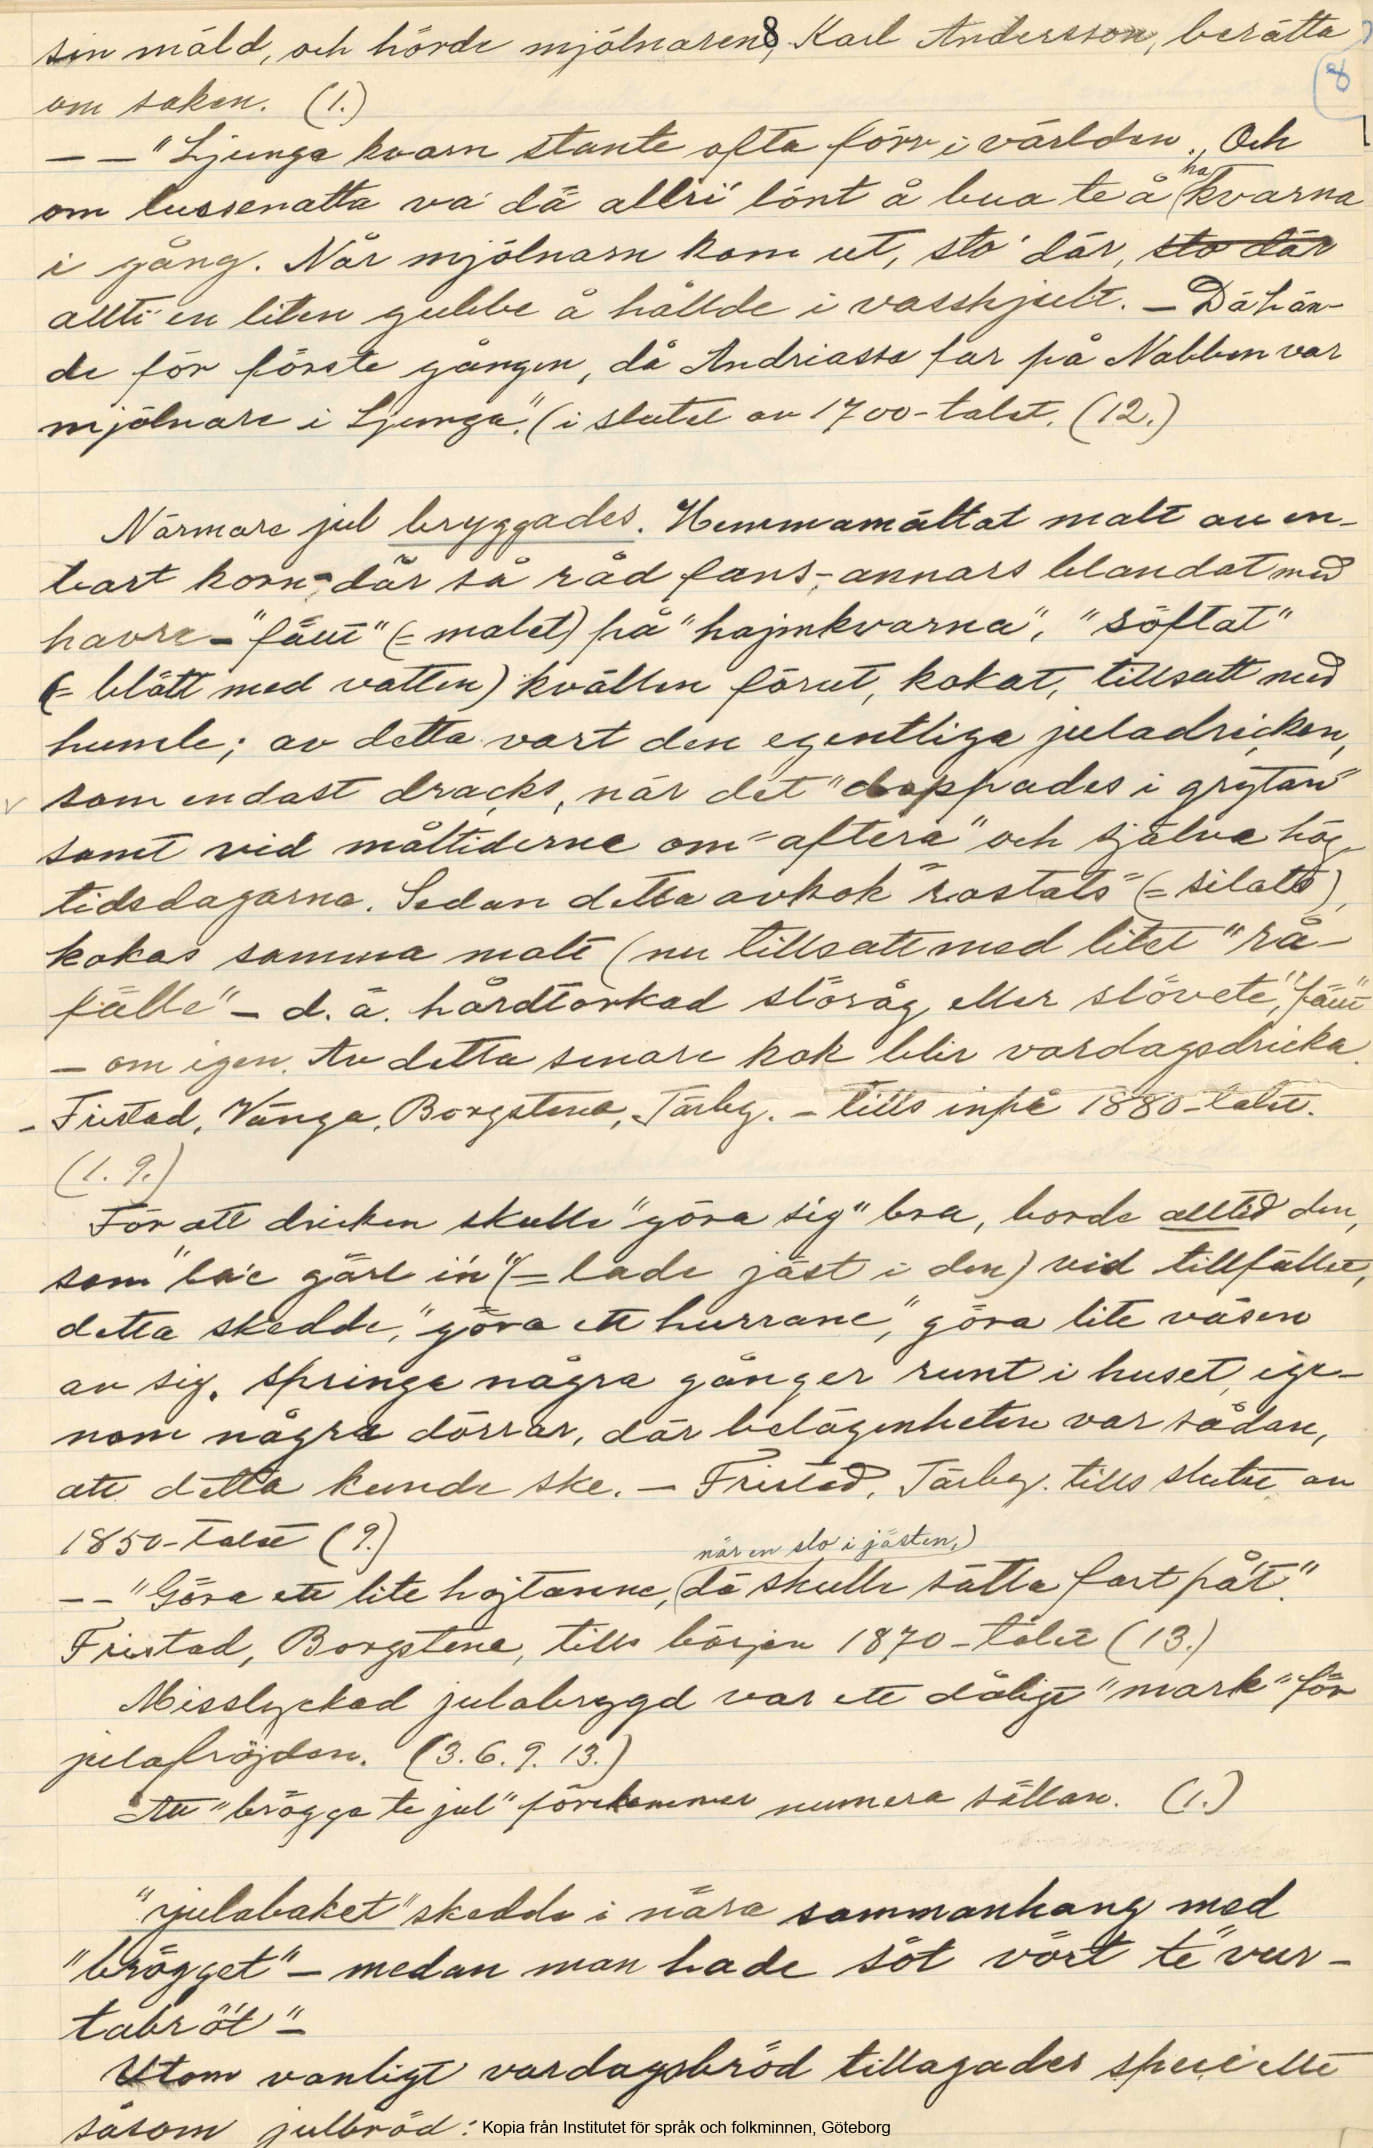 8
sin mäld, och hörde mjölnaren, Karl Andersson, berätta
8
om saken. (1.)
— — "Ljunga kvarn stante ofta förr i världen. Och
om lussenatta va' dä allri' lönt å bua te å ha kvarna
i gång. När mjölnarn kom ut, sto' där, sto där
allti' en liten gubbe å hållde i vasshjult. – Dä hän-
de för förste gången, då Andriassa far på Nabben var
mjölnare i Ljunga". (i slutet av 1700-talet. (12.)
Närmare jul bryggades. Hemmamältat malt av en-
bart korn – där så råd fans, – annars blandat med
havre – "fäut" (= malet) på "hajmkvarna", "söftat"
(= blött med vatten) kvällen förut, kokat, tillsatt med
humle; av detta vart den egentliga juladricken,
som endast dracks, när det "doppades i grytan"
samt vid måltiderna om "aftera" och själva hög-
tidsdagarna. Sedan detta avkok "rostats" (= silats),
kokas samma malt (nu tillsatt med litet "rå-
fälle" – d. ä. hårdtorkad slöråg eller slövete", "fäut"
– om igen. Av detta senare kok blir vardagsdricka.
– Fristad, Vånga, Borgstena, Tärby. – tills inpå 1880-talet.
(1. 9.)
För att dricken skulle "göra sig" bra, borde alltid den,
som "la'e gärt in" (= lade jäst i den) vid tillfället,
detta skedde, "göra ett hurrane", göra lite väsen
av sig, springa några gånger runt i huset, ige-
nom några dörrar, där belägenheten var sådan,
att detta kunde ske. – Fristad, Tärby. tills slutet av
1850-talet (9.)
när en slo i jästen,)
– – "Göra ett lite hojtanne, dä skulle sätta fart på't".
Fristad, Borgstena, tills början 1870-talet (13.)
Misslyckad julabrygd var ett dåligt "mark" för
julafröjden. (3. 6. 9. 13.)
Att "brögga te jul" förekommer numera sällan. (1.)
"julabaket" skedde i nära sammanhang med
"brögget" – medan man hade söt vört te "vur-
tabröt" –
Utom vanligt vardagsbröd tillagades speciellt
såsom julbröd:
Kopia från Institutet för språk och folkminnen, Göteborg